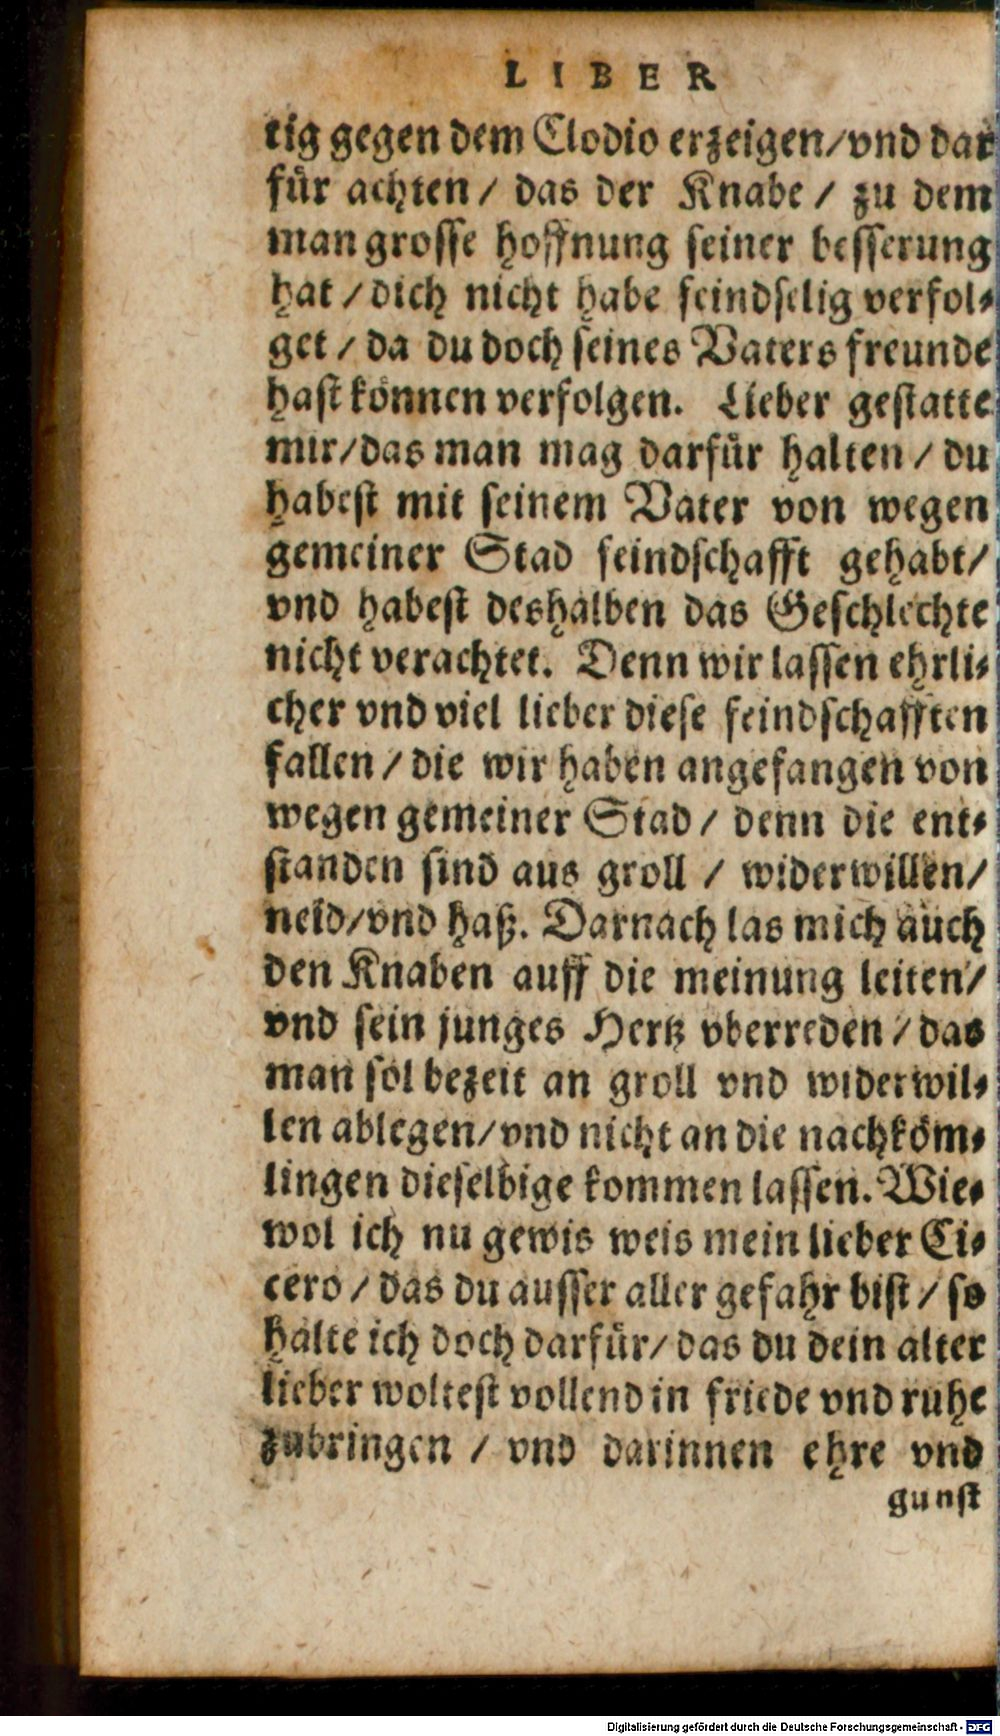 LIBER
tig gegen dem Clodio erzeigen/vnd dar
für achten / das der Knabe / zu dem
man grosse hoffnung seiner besserung
hat / dich nicht habe feindselig verfol⸗
get / da du doch seines Vaters freunde
hast können verfolgen. Lieber gestatte
mir/das man mag darfür halten / du
habest mit seinem Vater von wegen
gemeiner Stad feindschafft gehabt/
vnd habest deshalben das Geschlechte
nicht verachtet. Denn wir lassen ehrli⸗
cher vnd viel lieber diese feindschafften
fallen / die wir haben angefangen von
wegen gemeiner Stad / denn die ent⸗
standen sind aus groll / widerwillen/
neid/vnd haß. Darnach las mich auch
den Knaben auff die meinung leiten/
vnd sein junges Hertz vberreden / das
man sol bezeit an groll vnd widerwil⸗
len ablegen/vnd nicht an die nachköm⸗
lingen dieselbige kommen lassen. Wie⸗
wol ich nu gewis weis mein lieber Ci⸗
cero / das du ausser aller gefahr bist / so
halte ich doch darfür/ das du dein alter
lieber woltest vollend in friede vnd ruhe
zubringen / vnd darinnen ehre vnd
gunst
Digitalisierung gefördert durch die Deutsche Forschungsgemeinschaft - DFG